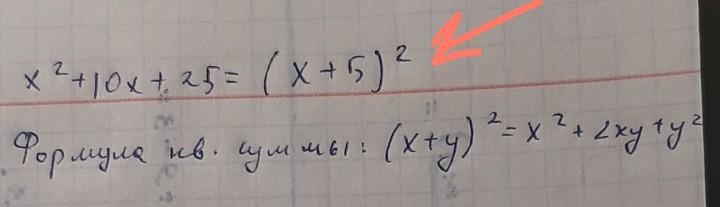 x²+10x+25=(x+5)²
Формула кв. суммы: (x+y)²=x²+2xy+y²